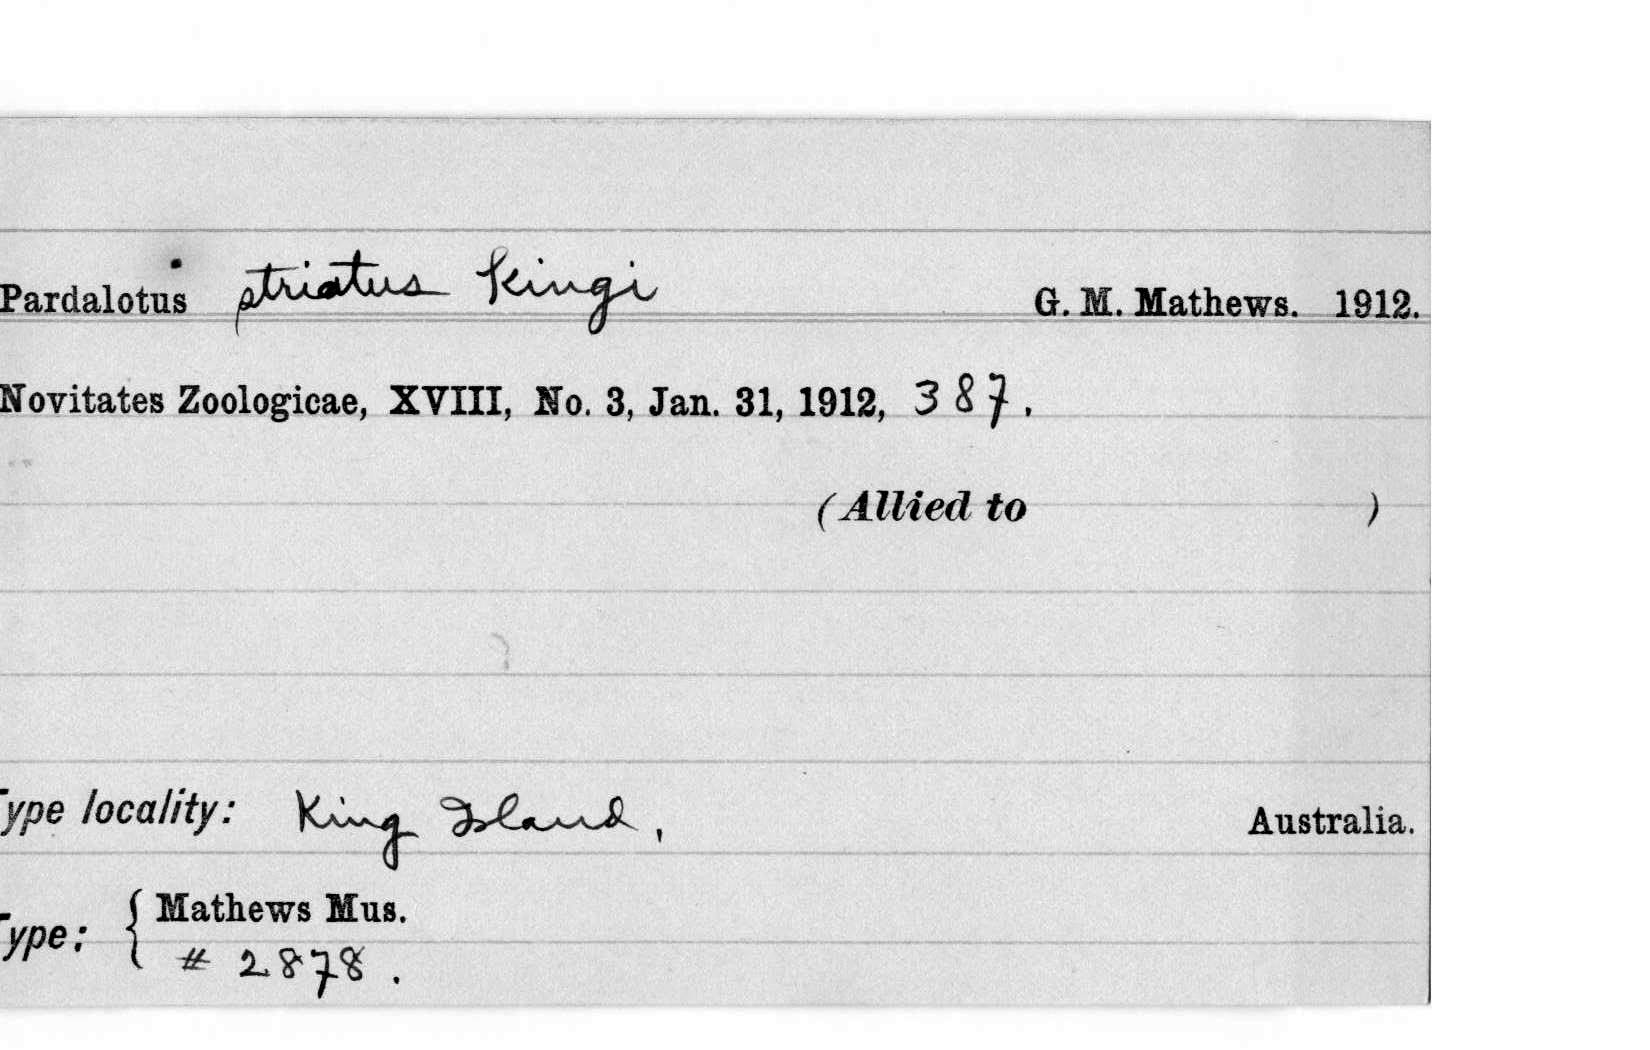 Pardalotus striatus kingi G. M. Mathews. 1912.
Novitates Zoologicae, XVIII, No. 3, Jan. 31, 1912, 387.
(Allied to )
Type locality: King Island, Australia.
Type: { Mathews Mus.
# 2878.